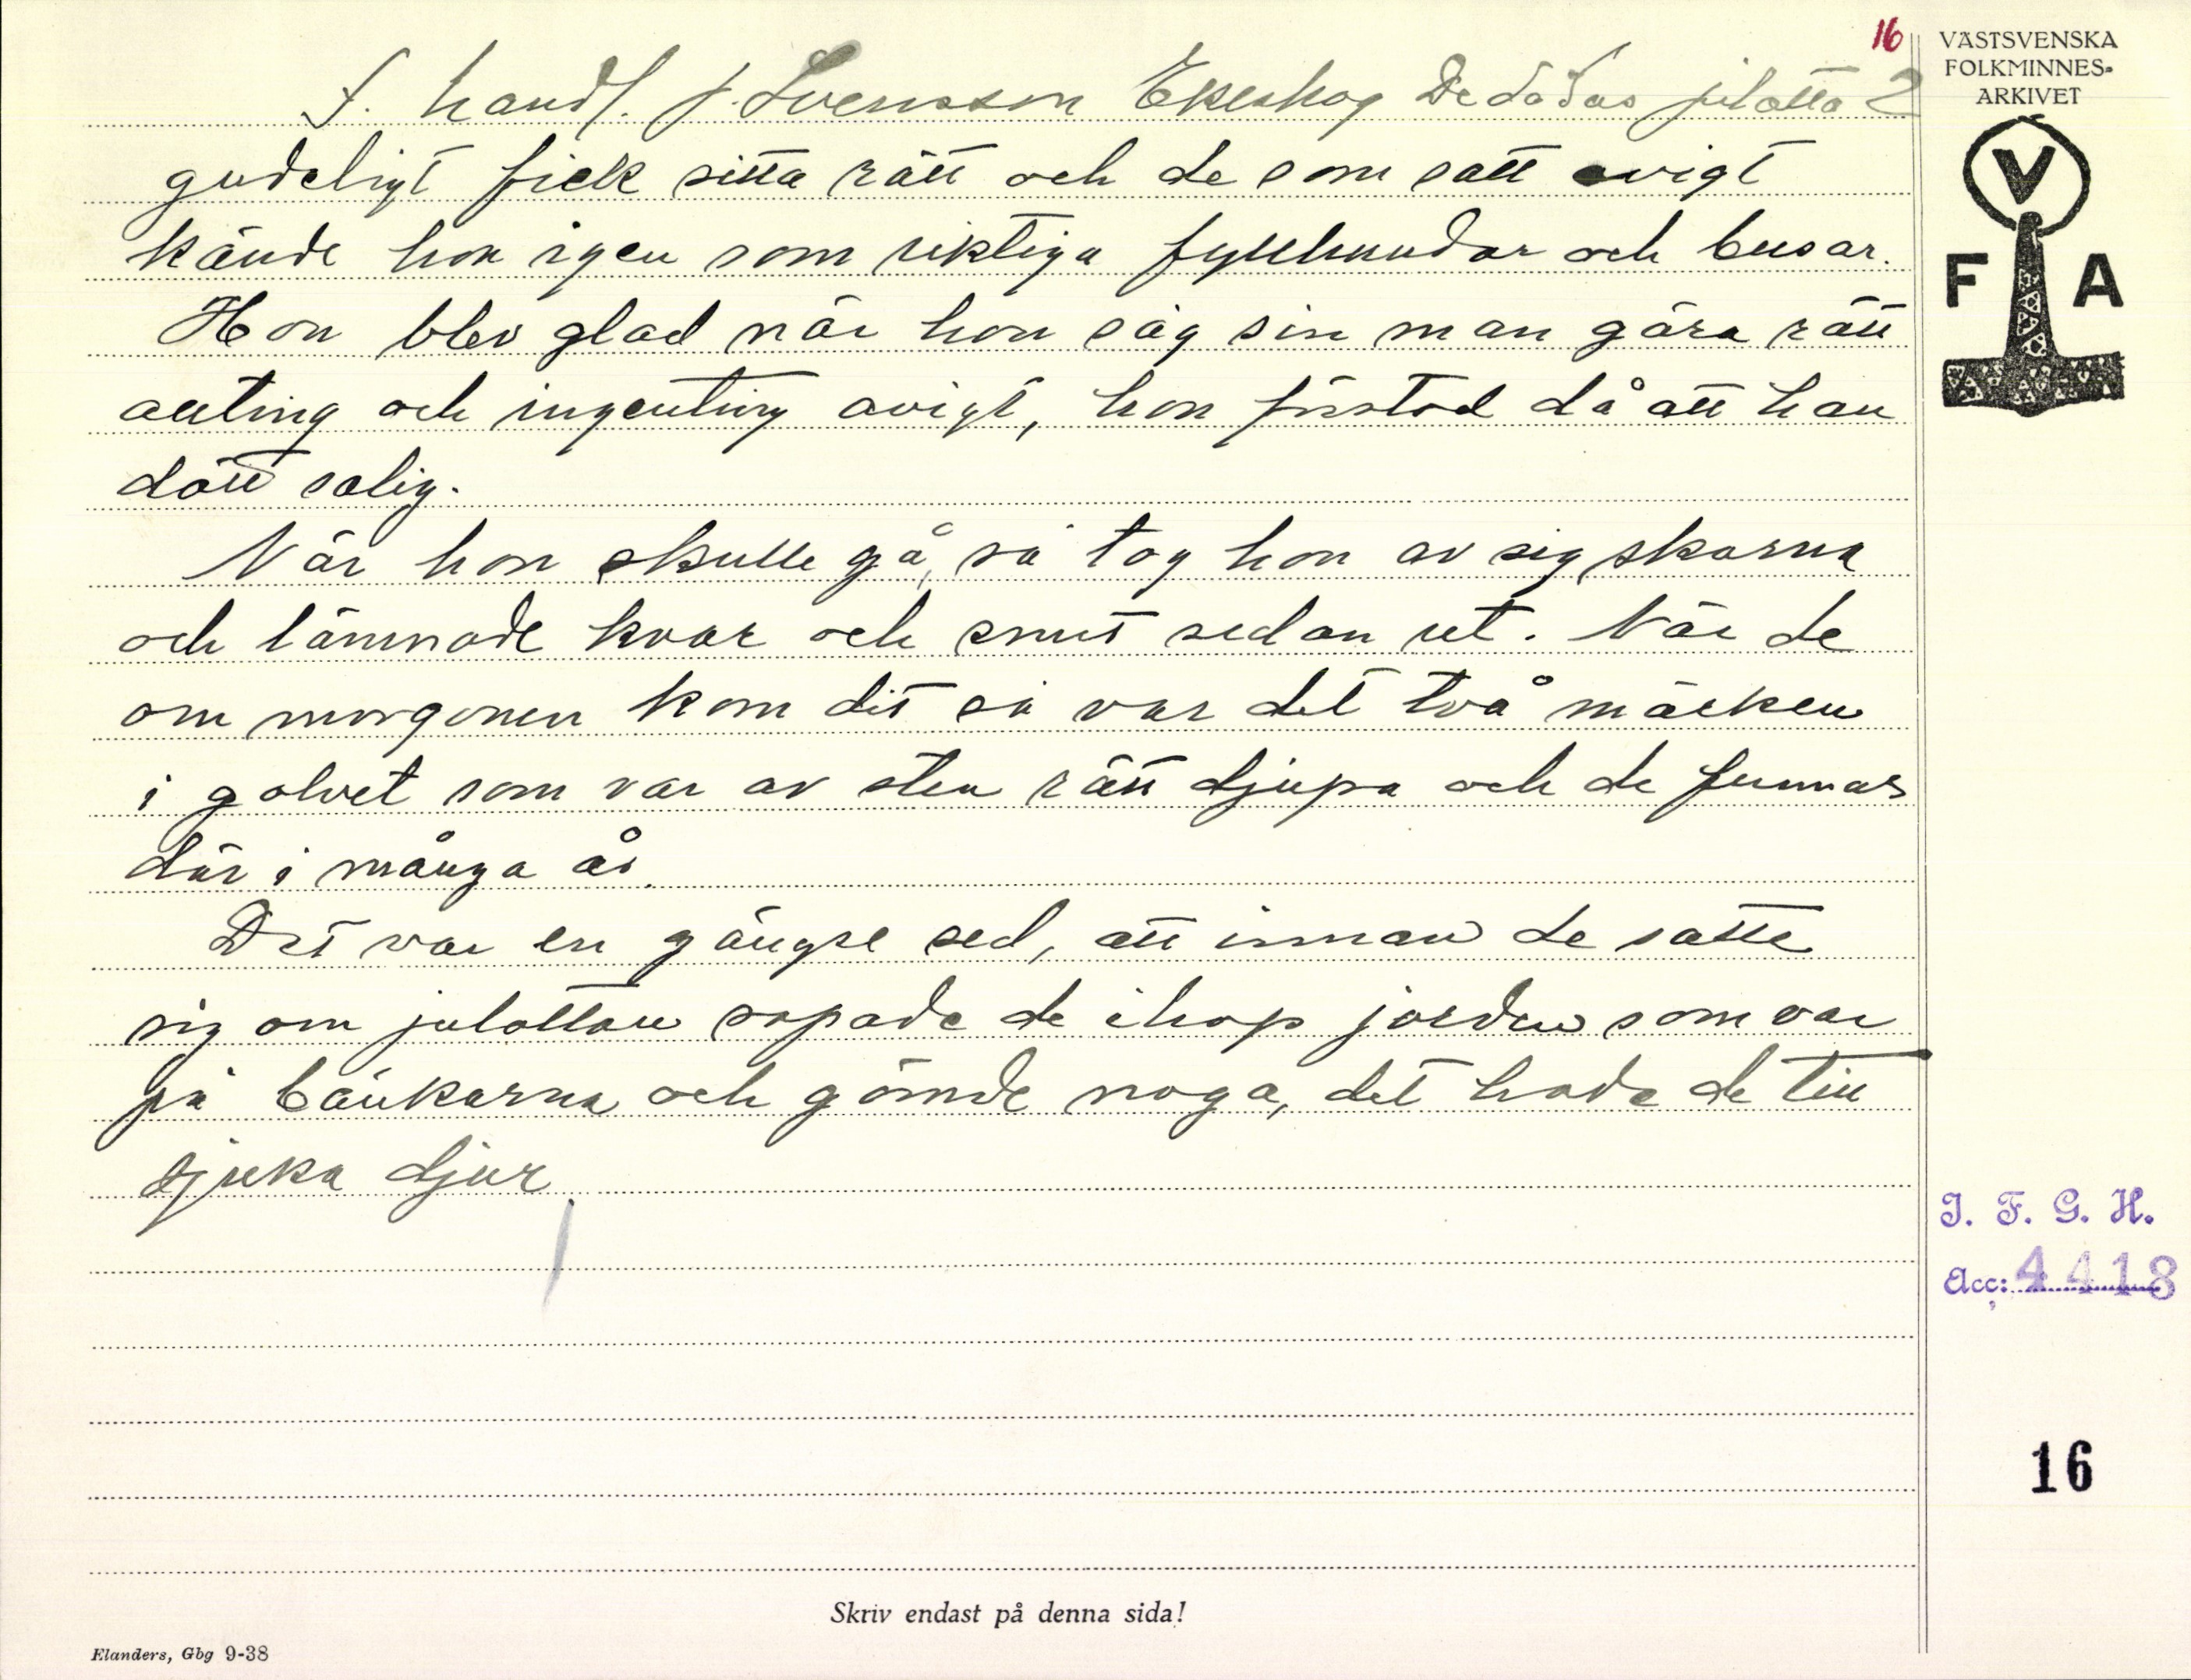 16
VÄSTSVENSKA
FOLKMINNES-
ARKIVET
f. handl. J. Svensson Ekeskog De dödas julotta 2
gudeligt fick sitta rätt och de som satt avigt
kände hon igen som riktiga fyllhundar och busar.
Hon blev glad när hon såg sin man göra rätt
allting och ingenting avigt, hon förstod då att han
dött salig.
När hon skulle gå, så tog hon av sig skorna
och lämnade kvar och smet sedan ut. När de
om morgonen kom dit så var det två märken
i golvet som var av sten rätt djupa och de funnos
där i många år.
Det var en gängse sed, att innan de satte
sig om julottan sopade de ihop jorden som var
på bänkarna och gömde noga, det hade de till
sjuka djur.
V
F A
I. F. G. H.
Acc: 4418
16
Skriv endast på denna sida!
Elanders, Gbg 9-38